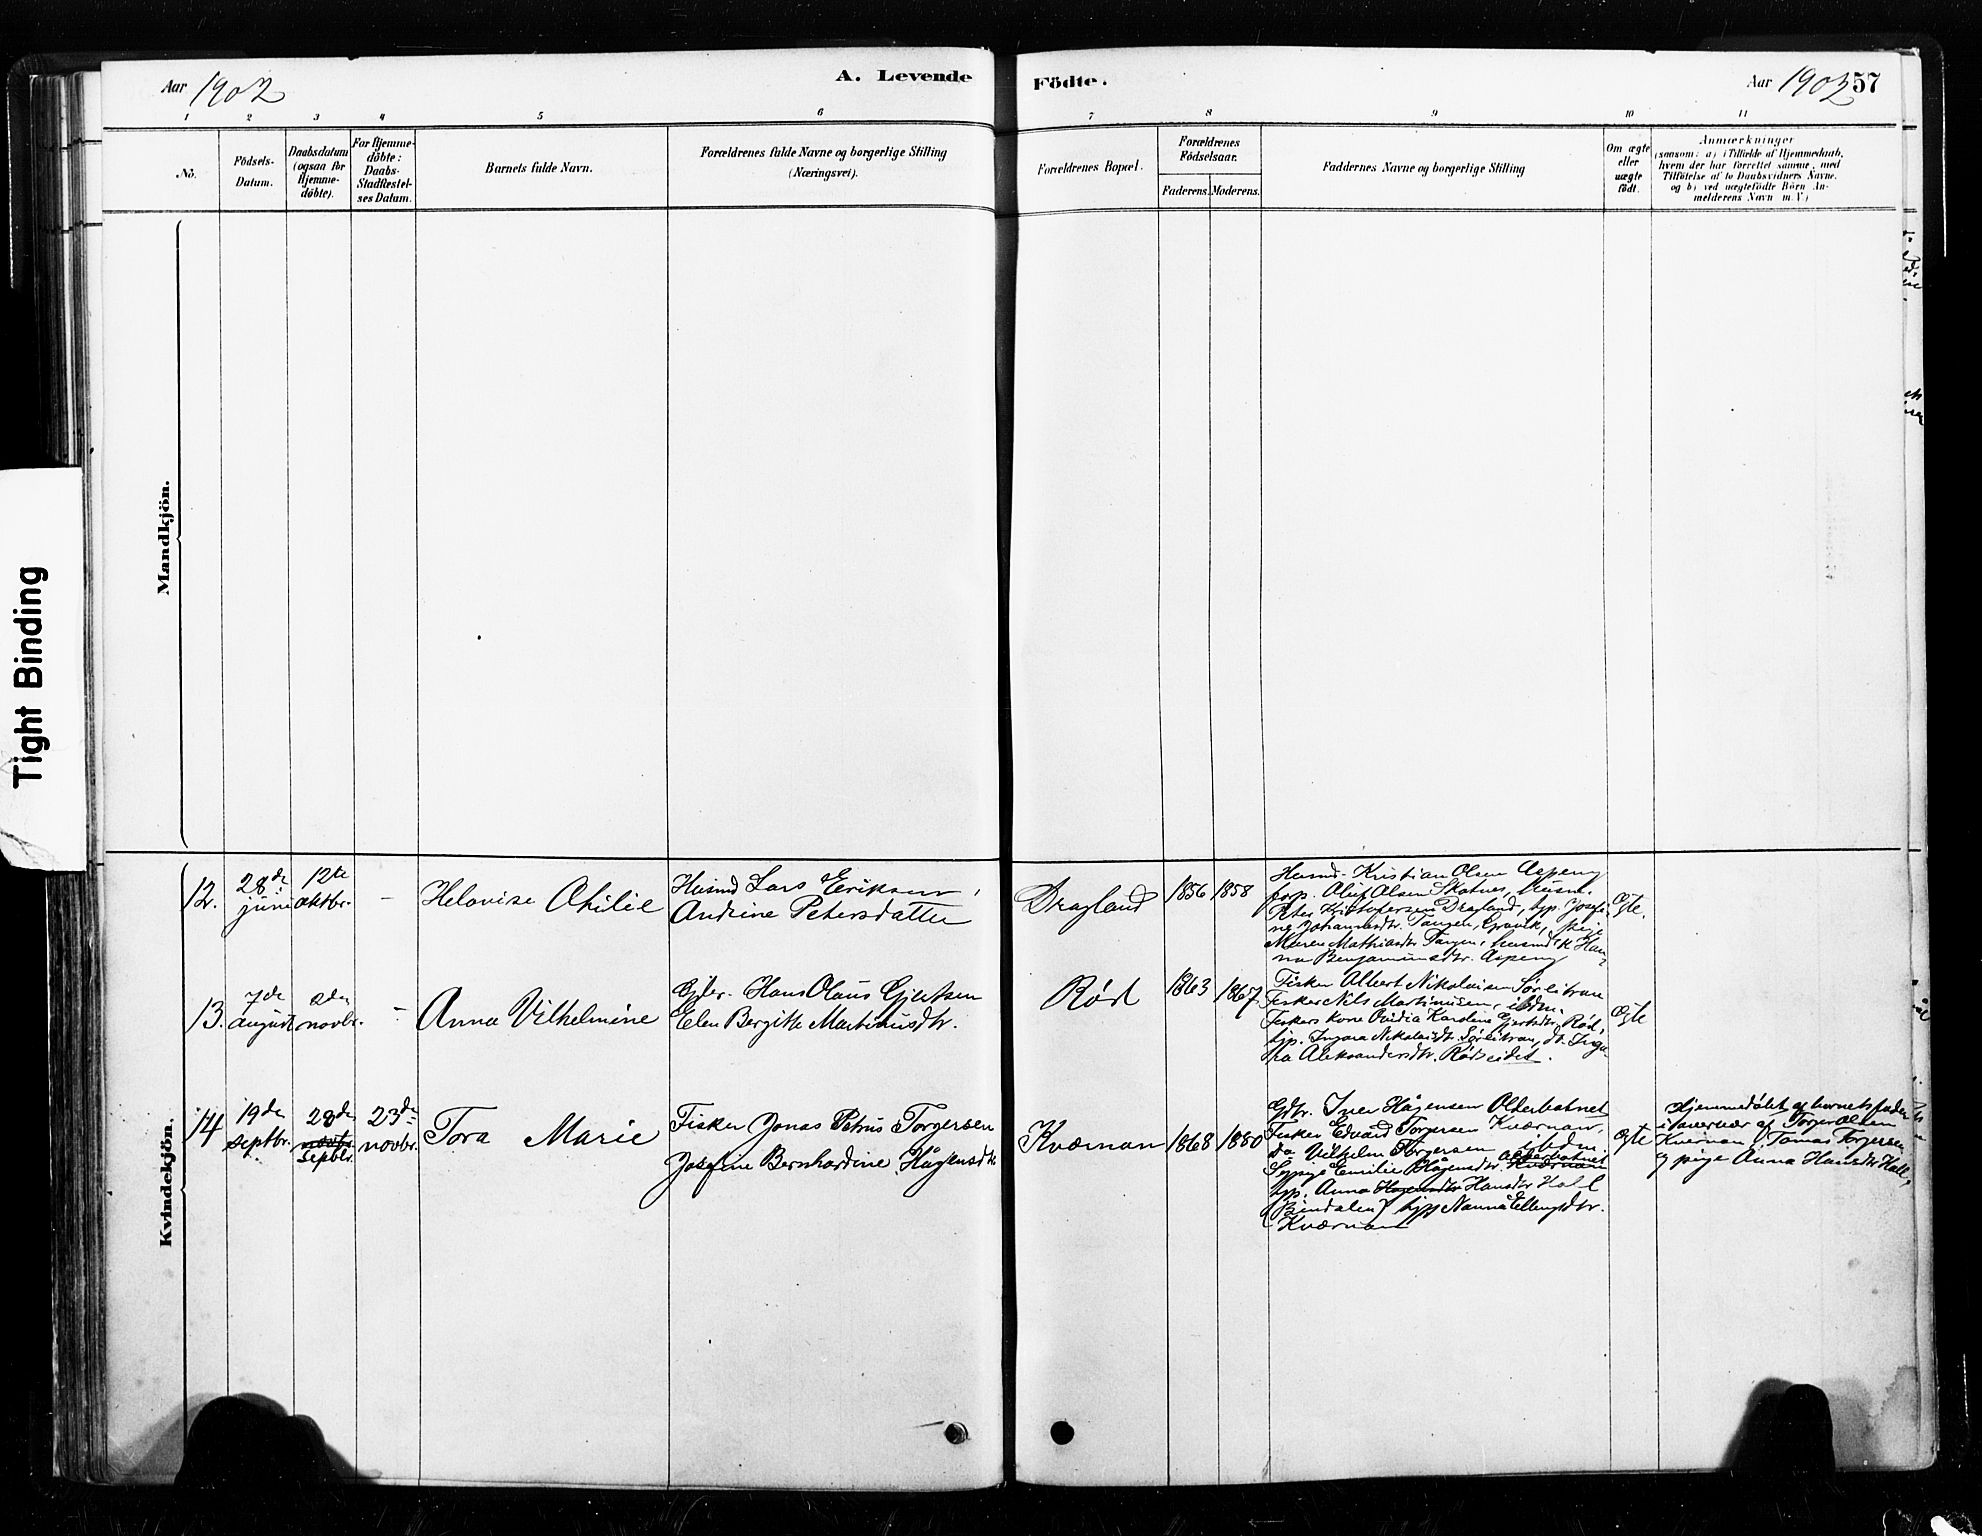 Aar 1902
A. Levende
Födte.
Aar 1902
57
1 2 3 4 5 6 7 8 9 10 11
No.
Födsels-
Datum.
Daabsdatum
(ogsaa for
Hjemme-
döbte).
For Hjemme-
döbte:
Daabs-
Stadfæstel-
ses Datum.
Barnets fulde Navn.
Forældrenes fulde Navne og borgerlige Stilling
(Næringsvei).
Forældrenes Bopæl.
Forældrenes
Födselsaar.
Faderens. Moderens.
Faddernes Navne og borgerlige Stilling
Om ægte
eller
uægte
födt.
Anmærkninger
(saasom: a) i Tilfælde af Hjemmedaab,
hvem der har forrettet samme, med
Tilföielse af to Daabsvidners Navne,
og b) ved uægtefödte Börn An-
melderens Navn m.V.)
Tight Binding
Mandkjön.
Kvindekjön.
12.
28de
juni
12te
oktbr.
-
Helovise Otilie
Husmd Lars Eriksen,
Andrine Petersdatter
Dragland
1856 1858
Husmd. Kristian Olsen Aspeng
forp. Oluf Olsen Skotnes, husm.
Peter Kristofersen Dragland, typ. Josefi-
ne Johannesdtr. Tangen, Gravik, pige
Maren Mathiasdtr Tangen, husmdk Han-
na Benjaminsdtr. Aspeng
Ægte.
13.
7de
august
2den
novbr.
-
Anna Vilhelmine
Gjdbr. Hans Olaus Gjertsen
Elen Bergitte Martinusdtr.
Rød
1863 1867
Fisker Albert Nikolaisen Sørlitran
Fisker Nils Martinusen, ibdn.
Fiskers kone Ovidia Karoline Gjertsdtr. Rød,
typ. Ingara Nikolaisdtr. Sørlitran, do. Inge-
ra Aleksandersdtr. Rødseidet.
Ægte
14
19de
septbr.
28de
novbr
septbr.
23de
novbr.
Tora Marie
Fisker Jonas Petrus Torgersen
Josefine Bernhardine Hågensdtr
Kværnan
1868 1880
Gdbr. Iver Hågensen Olderbotnet
Fisker Edvard Torgersen Kværnan,
do Vilhelm Torgersen ibdn
Sypige Emilie Hågensdtr. Olderbotnet Kværnan
typ. Anna Hågensdtr Hansdtr Hall
(Bindalen) typ Nanna Ellingsdtr.
Kværnan
Ægte
Hjemmedøbt af barnets fader
i nærvær af Torger Olsen
Kværnan, Tomas Torgersen
og pige Anna Hansdtr Hall,